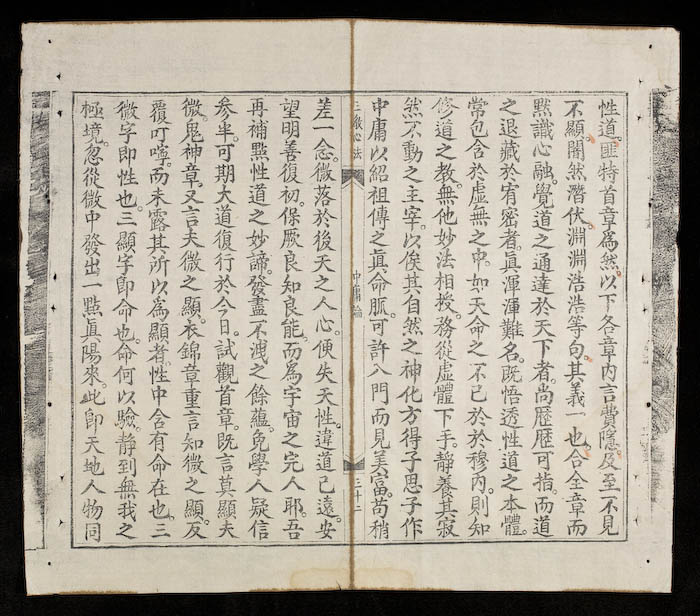 性道。匪特首章爲然。以下各章內言費隱。及至一不見
不顯。闇然潛伏。淵淵浩浩等句。其義一也。合全章而
默識心融。覺道之通達於天下者。尚歷歷可指。而道
之退藏於宥密者。眞渾渾難名。既悟透性道之本體。
常包含於虛無之中。如天命之不已於於穆內。則知
修道之教。無他妙法相授。務從虛體下手。靜養其寂
然不動之主宰。以俟其自然之神化。方得子思子作
中庸以紹祖傳之眞命脈。可許入門而見美富。苟稍
三教心法
中庸論
三十二
差一念。微落於後天之人心。便失天性。違道已遠。安
望明善復初。保厥良知良能。而爲宇宙之完人耶。吾
再補點性道之妙諦。發盡不洩之餘蘊。免學人疑信
參半。可期大道復行於今日。試觀首章。既言莫顯夫
微。鬼神章。又言夫微之顯。衣錦章重言知微之顯。反
覆叮嚀。而未露其所以爲顯者。性中含有命在也。三
微字卽性也。三顯字卽命也。命何以驗。靜到無我之
極境。忽從微中發出一點眞陽來。此卽天地人物同